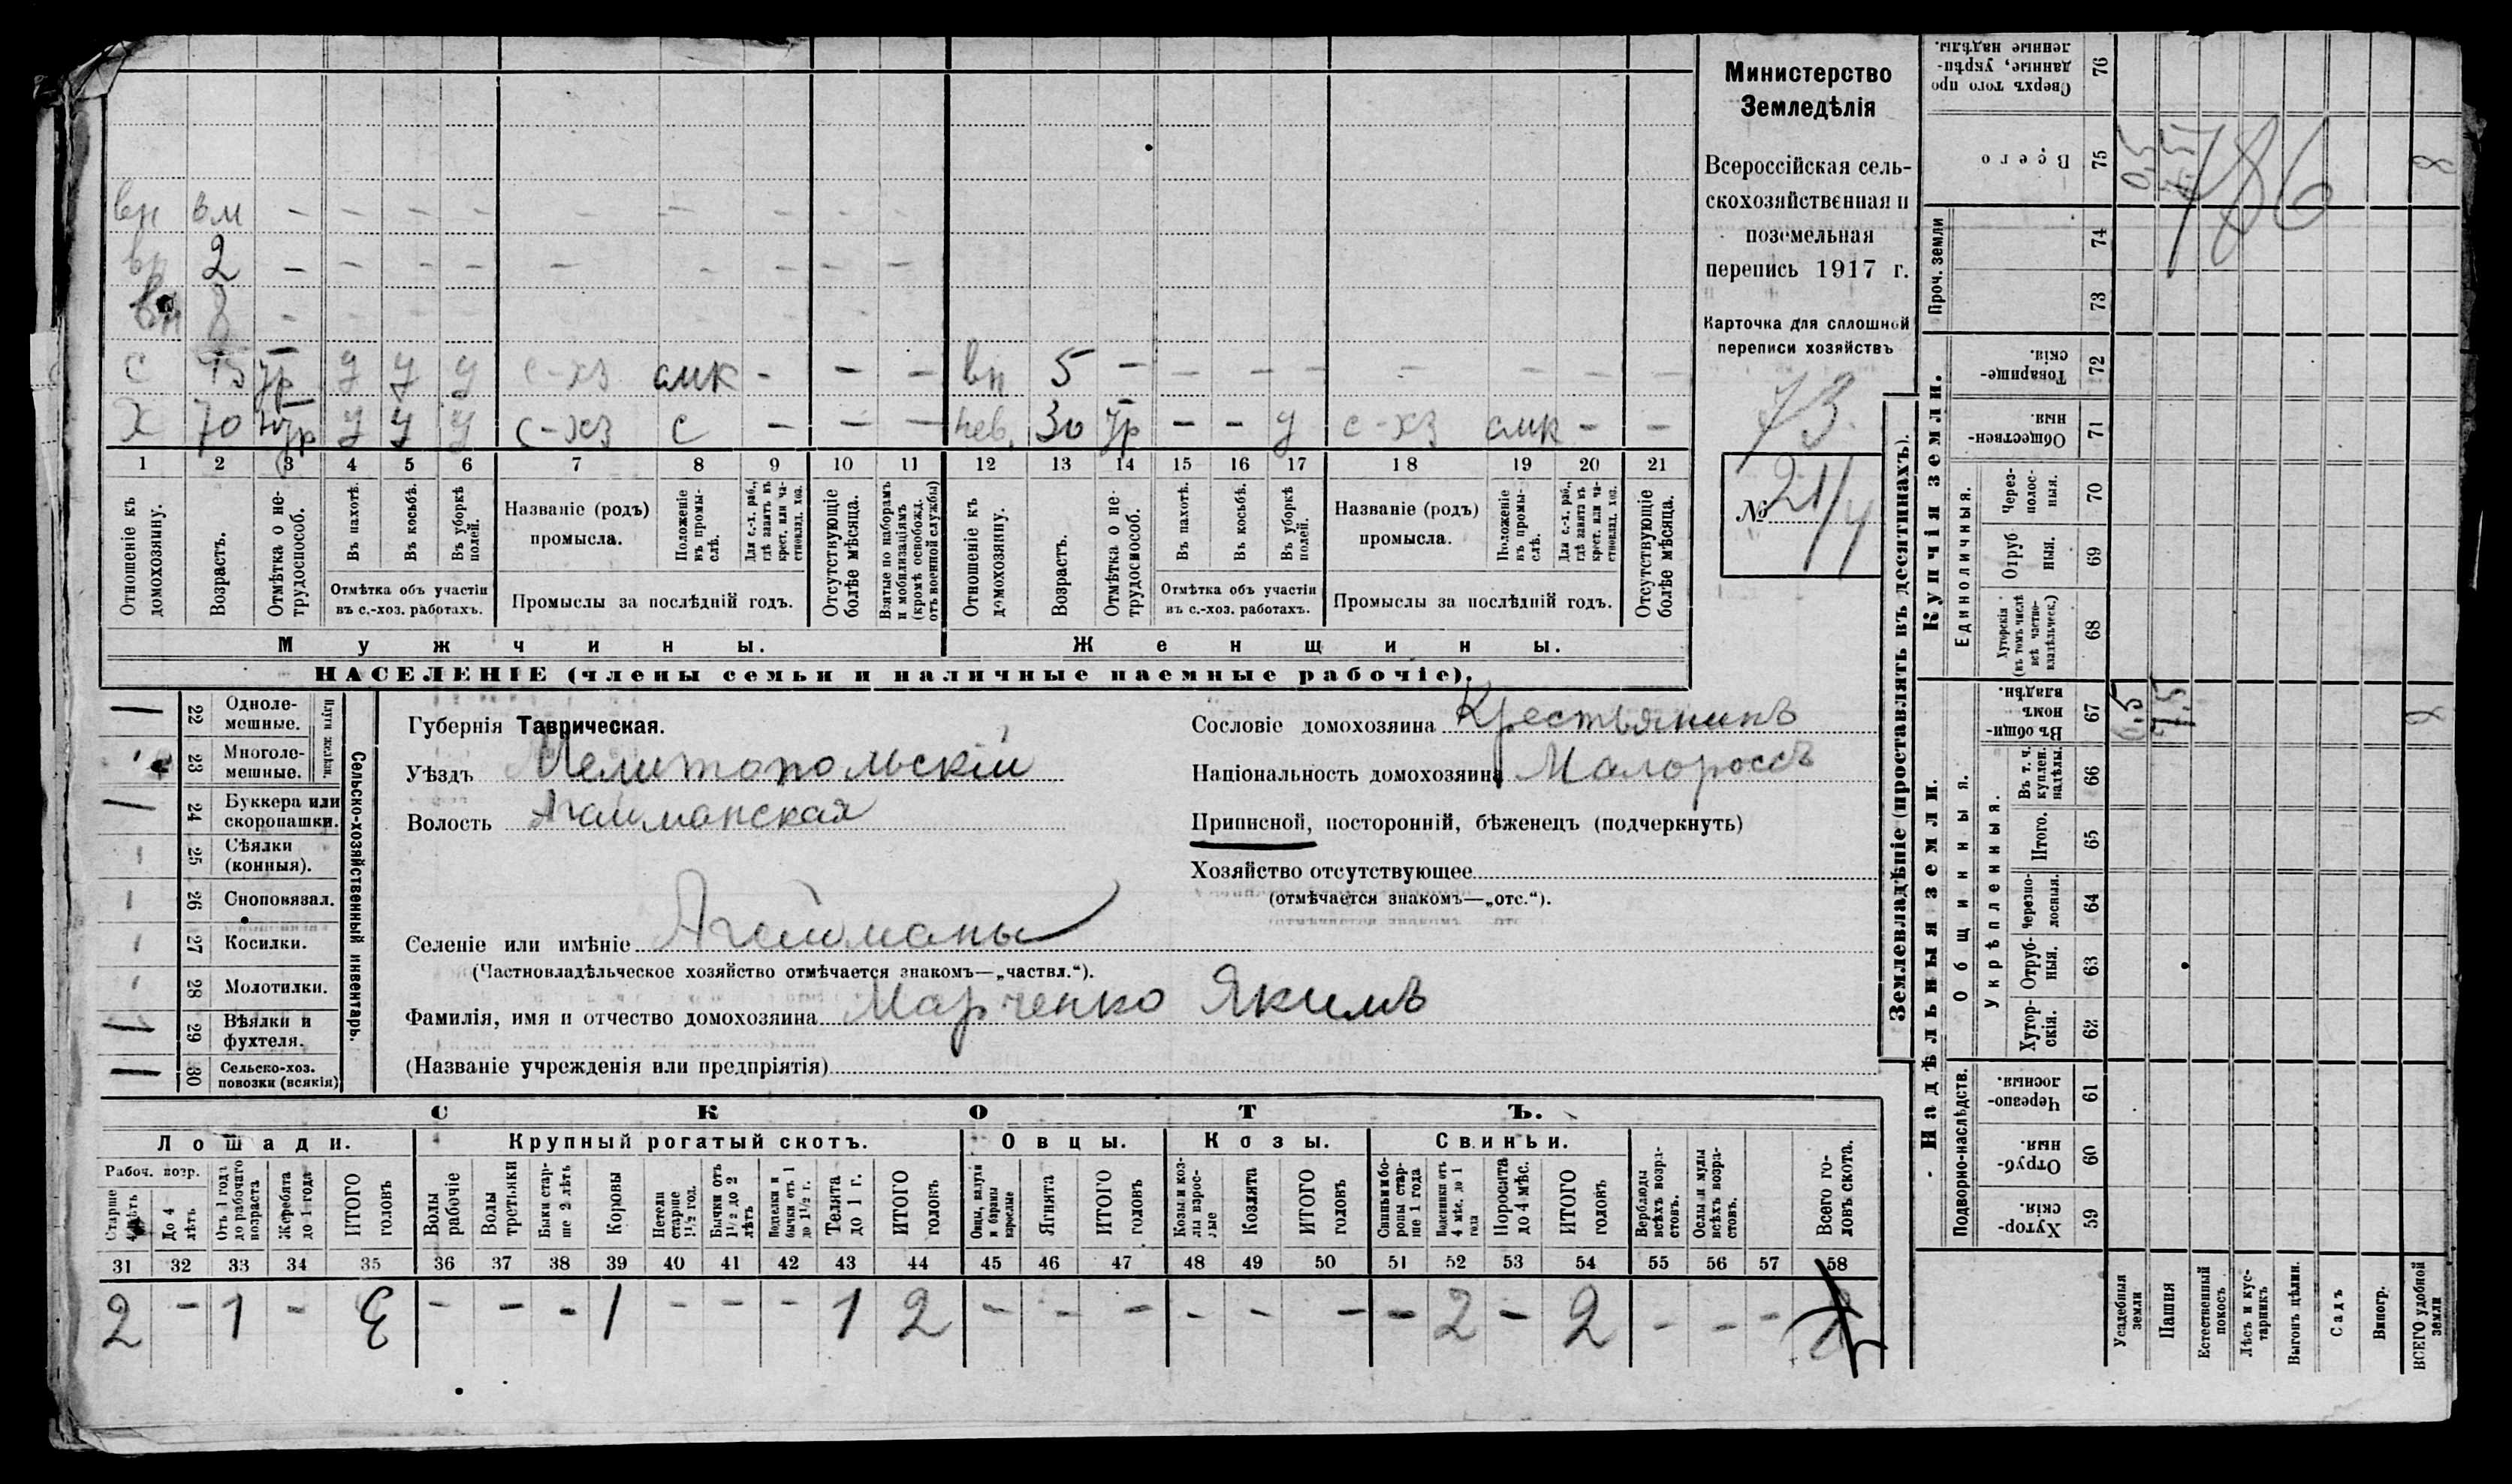 Министерство
Земледѣлія
Всероссійская сель-
скохозяйственная и
поземельная
перепись 1917 г.
Карточка для сплошной
переписи хозяйствъ
73.
№ 21/4
вн вм - - - - - - - - -
вн 2 - - - - - - - - -
вн 8 - - - - - - - -
с ур у у у с-хз смк - - - вн 5 - - - - - - - -
Х 70 у у у с-хз с - - - нев. 30 ур - - у с-хз смк - -
1 2 3 4 5 6 7 8 9 10 11 12 13 14 15 16 17 18 19 20 21
Отношеніе къ домохозяину.
Возрастъ.
Отмѣтка о не-трудоспособ.
Въ пахотѣ.
Въ косьбѣ.
Въ уборкѣ полей.
Отмѣтка объ участіи
въ с.-хоз. работахъ.
Названіе (родъ)
промысла.
Положеніе въ промы-слѣ.
Для с.-х. раб., гдѣ занятъ въ крест. или ча-стновлад. хоз.
Промыслы за послѣдній годъ.
Отсутствующіе болѣе мѣсяца.
Взятые по наборамъ и мобилизаціямъ (кромѣ освобожд. отъ военной службы)
Отношеніе къ домохозяину.
Возрастъ.
Отмѣтка о не-трудоспособ.
Въ пахотѣ.
Въ косьбѣ.
Въ уборкѣ полей.
Отмѣтка объ участіи
въ с.-хоз. работахъ.
Названіе (родъ)
промысла.
Положеніе въ промы-слѣ.
Для с.-х. раб., гдѣ занята въ крест. или ча-стновлад. хоз.
Промыслы за послѣдній годъ.
Отсутствующіе болѣе мѣсяца.
Мужчины. Женщины.
НАСЕЛЕНІЕ (члены семьи и наличные наемные рабочіе).
Сельско-хозяйственный инвентарь.
Плуги желѣзн.
22 Одноле-
мешные.
23 Многоле-
мешные.
24 Буккера или
скоропашки.
25 Сѣялки
(конныя).
26 Сноповязал.
27 Косилки.
28 Молотилки.
29 Вѣялки и
фухтеля.
30 Сельско-хоз.
повозки (всякія)
Губернія Таврическая.
Уѣздъ Мелитопольскій
Волость Агайманская
Селеніе или имѣніе Агайманы
(Частновладѣльческое хозяйство отмѣчается знакомъ—„частвл.“).
Фамилія, имя и отчество домохозяина Марченко Якимъ
(Названіе учрежденія или предпріятія)
Сословіе домохозяина Крестьянинъ
Національность домохозяина Малороссъ
Приписной, посторонній, бѣженецъ (подчеркнуть)
Хозяйство отсутствующее
(отмѣчается знакомъ—„отс.“).
СКОТЪ.
Лошади. Крупный рогатый скотъ. Овцы. Козы. Свиньи.
Рабоч. возр.
Старше 4 лѣтъ
До 4 лѣтъ
Отъ 1 года до рабочаго возраста
Жеребята до 1 года
ИТОГО головъ
Волы рабочіе
Волы третьяки
Быки стар-ше 2 лѣтъ
Коровы
Нетели старше 1½ год.
Бычки отъ 1½ до 2 лѣтъ
Подтелки и бычки отъ 1 до 1½ г.
Телята до 1 г.
ИТОГО головъ
Овцы, валухи и бараны взрослые
Ягнята
ИТОГО головъ
Козы и коз-лы взрос-лые
Козлята
ИТОГО головъ
Свиньи и бо-ровы стар-ше 1 года
Подсвинки отъ 4 мѣс. до 1 года
Поросята до 4 мѣс.
ИТОГО головъ
Верблюды всѣхъ возра-стовъ.
Ослы и мулы всѣхъ возра-стовъ.
Всего го-ловъ скота.
31 32 33 34 35 36 37 38 39 40 41 42 43 44 45 46 47 48 49 50 51 52 53 54 55 56 57 58
2 - 1 - - - - 1 - - - 1 2 - - - - - - - 2 - 2 - - -
Землевладѣніе (проставлять въ десятинахъ).
Надѣльныя земли. Купчія земли. Проч. земли
Подворно-наслѣдств.
Общинныя.
Укрѣпленныя.
Единоличныя.
Сверхъ того про-
данные, укрѣп-
ленные надѣлы.
76
Всего
75 0,5 7,5 8
786
74
73
Товарище-
скія.
72
Обществен-
ныя
71
Через-
полос-
ныя.
70
Отруб-
ныя.
69
Хуторскія
(въ томъ числѣ
всѣ частно-
владѣльческ.)
68
Въ общин-
номъ
владѣн.
67 0,5 7,5 8
Въ т. ч.
куплен.
надѣлы.
66
Итого.
65
Черезпо-
лосныя.
64
Отруб-
ныя.
63
Хутор-
скія.
62
Черезпо-
лосныя.
61
Отруб-
ныя.
60
Хутор-
скія.
59
Усадебныя земли
Пашня
Естественный покосъ
Лѣсъ и кус-тарникъ
Выгонъ цѣлин.
Садъ
Виногр.
ВСЕГО удобной земли